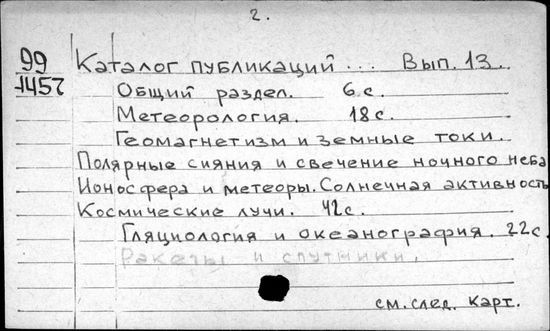 2.
99 Каталог публикаций ... Вып. 13.
1457 Общий раздел. 6 с.
Метеорология. 18 с.
Геомагнетизм и земные токи.
Полярные сияния и свечение ночного неба
Ионосфера и метеоры. Солнечная активность
Космические лучи. 42 с.
Гляциология и океанография. 22 с.
Ракеты и спутники.
см. след. карт.